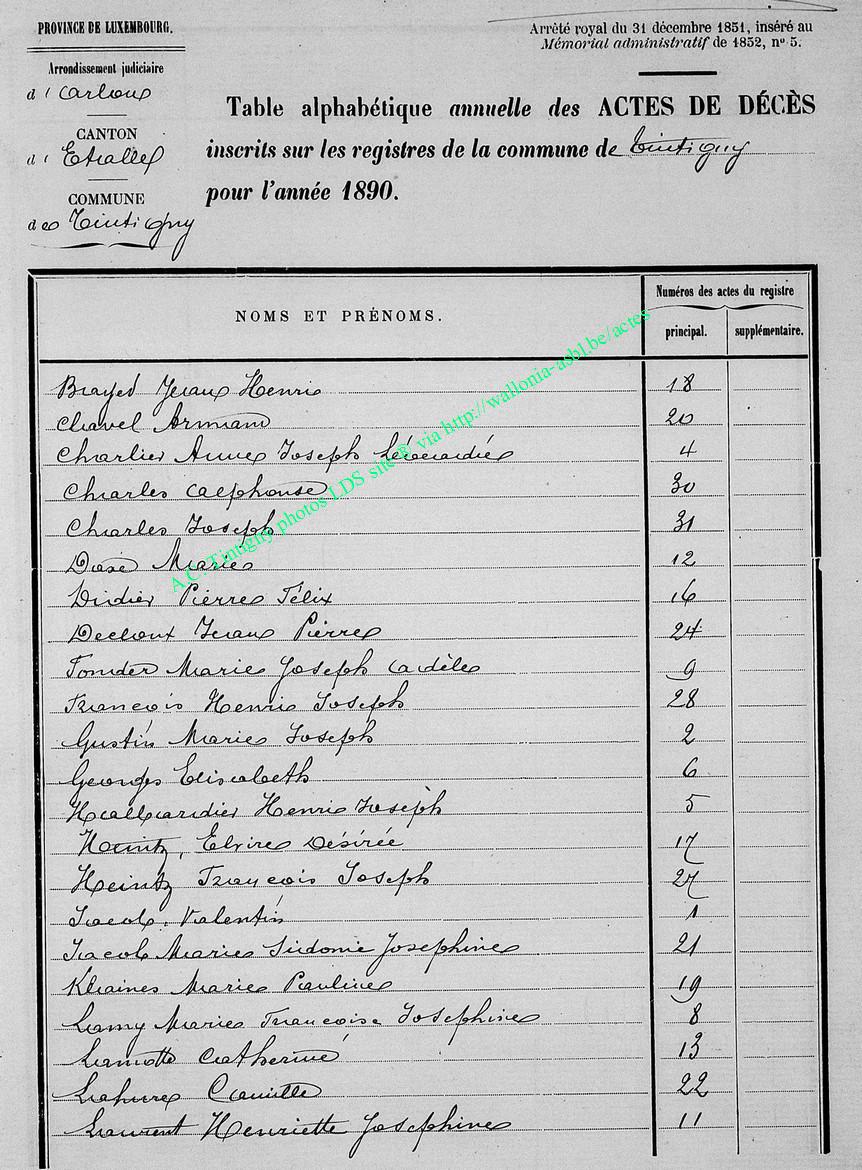 PROVINCE DE LUXEMBOURG.
Arrondissement judiciaire
d'Arlon
CANTON
d'Etalle
COMMUNE
de Tintigny
Arrêté royal du 31 décembre 1851, inséré au
Mémorial administratif de 1852, nº 5.
Table alphabétique annuelle des ACTES DE DÉCÈS
inscrits sur les registres de la commune de Tintigny
pour l'année 1890.
NOMS ET PRÉNOMS.
Numéros des actes du registre
principal. supplémentaire.
Jean Henri 18
Chavel Armand 20
Charlier Anne Joseph Léocadie 4
Charles Alphonse 30
Charles Joseph 31
Dasé Marie 12
Didier Pierre Félix 16
Decloux Jean Pierre 24
Marie Joseph Adèle 9
François Henri Joseph 28
Gustin Marie Joseph 2
Georges Elisabeth 6
Hallardier Henri Joseph 5
Heintz, Elvire Désirée 17
Heintz François Joseph 27
Jacob, Valentin 1
Jacob Marie Sidonie Josephine 21
Khaines Marie Pauline 19
Lamy Marie Françoise Josephine 8
Lamotte Catherine 13
Lahure Camille 22
Laurent Henriette Josephine 11
A.C. Tintigny photos LDS site @ via http://wallonia-asbl.be/actes